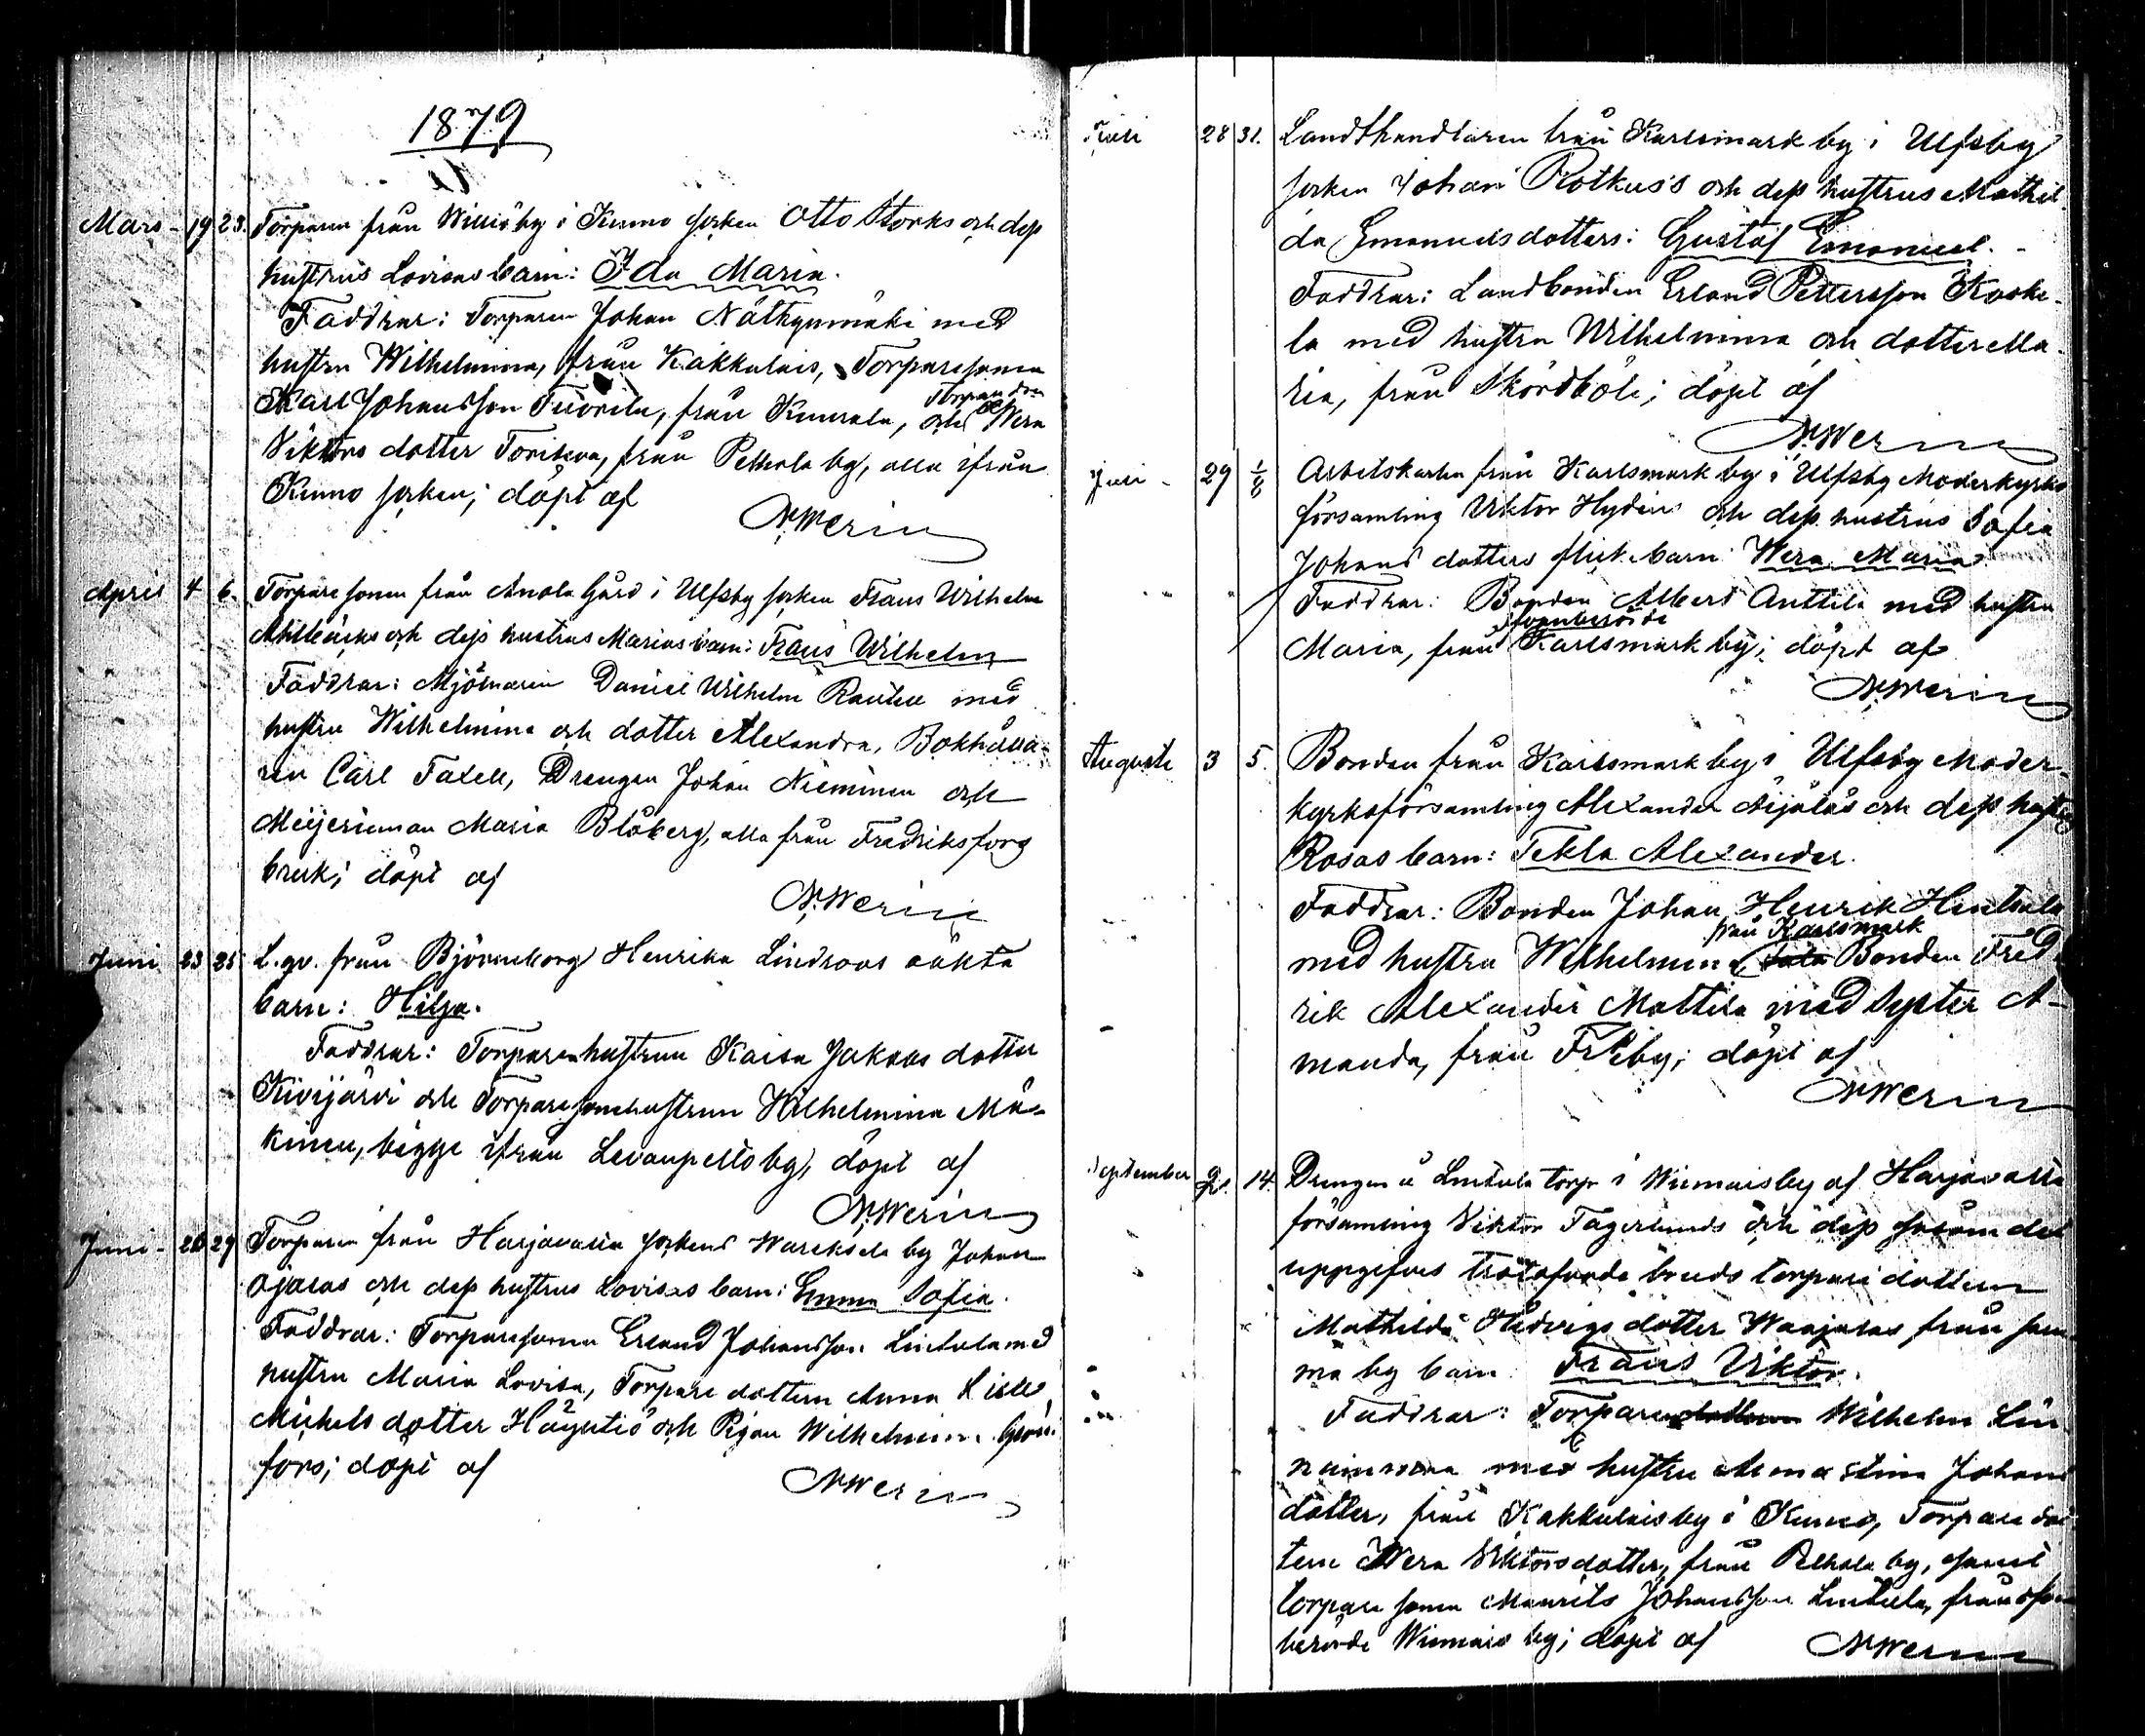 1879
Mars - 19 23. Torparen från Williöby i Kumo socken Otto Storks och dess
hustrus Lovisas barn: Ida Maria.
Faddrar: Torparen Johan Näthynmäki med
hustru Wilhelmina, från Kakkulais, Torparesonen
Karl Johansson Tuorila, från Kuurola, och Torparedn Wera
Viktors dotter Torikka, från Pelhola by, alla ifrån
Kumo socken; döpt af
N. Werin
April 4 6. Torparesonen från Anola Gård i Ulfsby socken Frans Wilhelm
Ahlbäcks och dess hustrus Marias barn: Frans Wilhelm
Faddrar: Mjölnaren Daniel Wilhelm Rautell med
hustru Wilhelmina och dotter Alexandra, Bokhålla-
ren Carl Faxell, Drengen Johan Nieminen och
Meijerinnan Maria Blåberg, alla från Fredriksfors
bruk; döpt af
N. Werin
Juni 23 25 L. qv. från Björneborg Henrika Lindroos oäkta
barn: Hilja.
Faddrar: Torparenhustrun Kaisa Jakobs dotter
Kivijärvi och Torparesonehustrun Wilhelmina Mä-
kinen, bägge ifrån Levanpelto by, döpt af
N. Werin
Juni - 26 29 Torparen från Harjavalta sockens Wareksela by Johan
Ojalas och dess hustrus Lovisas barn: Emma Sofia.
Faddrar: Torparesonen Erland Johansson Lintula med
hustru Maria Lovisa, Torpare dottern Anna Lisa
Michels dotter Häyhtiö och Pigan Wilhelmina Grön-
fors; döpt af
N. Werin
Juli 28 31. Landthandlaren från Karlsmark by i Ulfsby
socken Johan Rotkus's och dess hustrus Mathil-
da Emanuelsdotters: Gustaf Emanuel.
Faddrar: Landbonden Erland Pettersson Koske-
la med hustru Wilhelmina och dotter Ma-
ria, från Skördböle; döpt af
N. Werin
Juli - 29 1/8 Arbetskarlen från Karlsmark by i Ulfsby Moderkyrko
församling Viktor Hydéns och dess hustrus Sofia
Johans dotters flickebarn Wera Maria
Faddrar: Bonden Albert Anttila med hustru
Maria, från ofvanberörde Karlsmark by; döpt af
N. Werin
Augusti 3 5. Bonden från Karlsmark by i Ulfsby Moder-
kyrkoförsamling Alexander Äijäläs och dess hustrus
Rosas barn: Tekla Alexander.
Faddrar: Bonden Johan Henrik Hintsala
med hustru Wilhelmina från Karlsmark Bonden Fred-
rik Alexander Mattila med Syster A-
manda, från Friby; döpt af
N. Werin
September 14. Drengen å Lintula torp i Wiimais by af Harjavalta
församling Viktor Fagerlunds och dess såsom det
uppgifves trolofvade bruds torpare dottern
Mathilda Hedvigs dotter Waajalas från sam-
ma by barn: Frans Viktor.
Faddrar: Torparen Wilhelm Lin-
nainmaa med hustru Anna Stina Johans
dotter, från Kakkulais by i Kumo, Torpare dot-
tern Wera Viktorsdotter, från Pelhola by, samt
torpare sonen Maurits Johansson Lintula, från ofvan
berörde Wiimais by; döpt af N. Werin